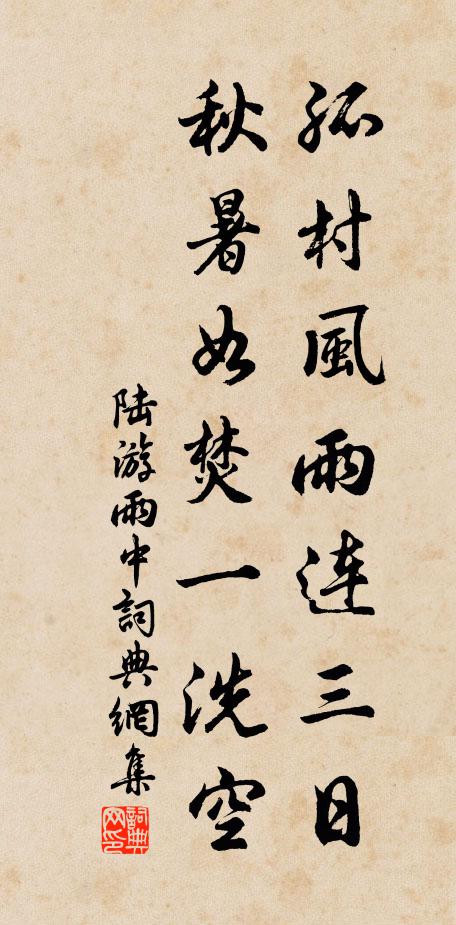 孤村風雨連三日
秋暑如焚一洗空
陆游雨中詞典網集
詞典网印